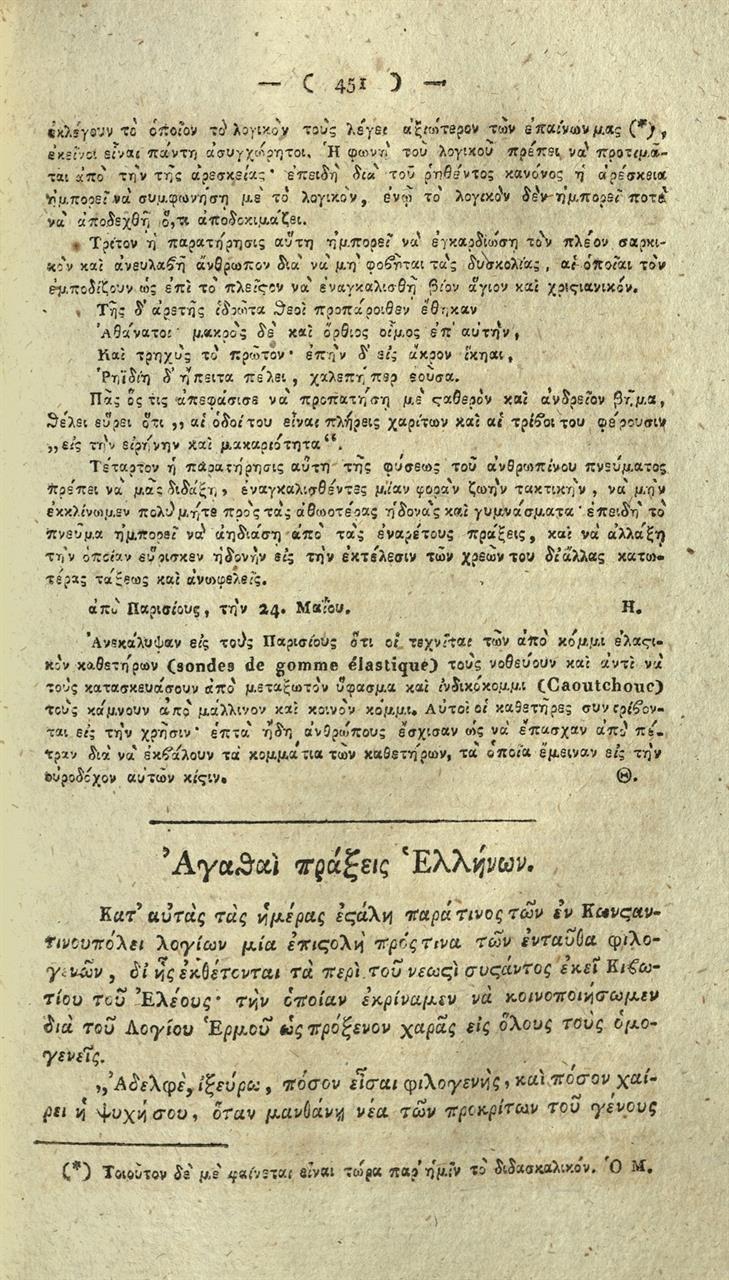 — ( 451 ) —
ἐκλέγουν τὸ ὁποῖον τὸ λογικὸν τοὺς λέγει ἀξιώτερον τῶν ἐπαίνων μας (*),
ἐκεῖνοι εἶναι πάντη ἀσυγχώρητοι. Ἡ φωνὴ τοῦ λογικοῦ πρέπει νὰ προτιμᾶ-
ται ἀπὸ τὴν τῆς ἀρεσκείας· ἐπειδὴ διὰ τοῦ ῥηθέντος κανόνος ἡ ἀρέσκεια
ἠμπορεῖ νὰ συμφωνήσῃ μὲ τὸ λογικὸν, ἐνῷ τὸ λογικὸν δὲν ἠμπορεῖ ποτὲ
νὰ ἀποδεχθῇ ὅ,τι ἀποδοκιμάζει.
Τρίτον ἡ παρατήρησις αὕτη ἠμπορεῖ νὰ ἐγκαρδιώσῃ τὸν πλέον σαρκι-
κὸν καὶ ἀνευλαβῆ ἄνθρωπον διὰ νὰ μὴ φοβῆται τὰς δυσκολίας, αἱ ὁποῖαι τὸν
ἐμποδίζουν ὡς ἐπὶ τὸ πλεῖϛον νὰ ἐναγκαλισθῇ βίον ἅγιον καὶ χριϛιανικόν.
Τῆς δ' ἀρετῆς ἱδρῶτα θεοὶ προπάροιθεν ἔθηκαν
Ἀθάνατοι· μακρὸς δὲ καὶ ὄρθιος οἶμος ἐπ' αὐτὴν,
Καὶ τρηχὺς τὸ πρῶτον· ἐπὴν δ' εἰς ἄκρον ἵκηαι,
Ῥηϊδίη δ' ἤπειτα πέλει, χαλεπή περ ἐοῦσα.
Πᾶς ὅς τις ἀπεφάσισε νὰ προπατήσῃ μὲ ϛαθερὸν καὶ ἀνδρεῖον βῆμα,
θέλει εὕρει ὅτι ,, αἱ ὁδοί του εἶναι πλήρεις χαρίτων καὶ αἱ τρίβοι του φέρουσιν
,, εἰς τὴν εἰρήνην καὶ μακαριότητα“.
Τέταρτον ἡ παρατήρησις αὕτη τῆς φύσεως τοῦ ἀνθρωπίνου πνεύματος
πρέπει νὰ μᾶς διδάξῃ, ἐναγκαλισθέντες μίαν φορὰν ζωὴν τακτικὴν, νὰ μὴν
ἐκκλίνωμεν πολὺ μήτε πρὸς τὰς ἀθωοτέρας ἡδονὰς καὶ γυμνάσματα· ἐπειδὴ τὸ
πνεῦμα ἠμπορεῖ νὰ ἀηδιάσῃ ἀπὸ τὰς ἐναρέτους πράξεις, καὶ νὰ ἀλλάξῃ
τὴν ὁποίαν εὕρισκεν ἡδονὴν εἰς τὴν ἐκτέλεσιν τῶν χρεῶν του δι' ἄλλας κατω-
τέρας τάξεως καὶ ἀνωφελεῖς.
ἀπὸ Παρισίους, τὴν 24. Μαΐου. Η.
Ἀνεκάλυψαν εἰς τοὺς Παρισίους ὅτι οἱ τεχνῖται τῶν ἀπὸ κόμμι ἐλαϛι-
κὸν καθετήρων (sondes de gomme élastique) τοὺς νοθεύουν καὶ ἀντὶ νὰ
τοὺς κατασκευάσουν ἀπὸ μεταξωτὸν ὕφασμα καὶ ἰνδικόκομμι (Caoutchouc)
τοὺς κάμνουν ἀπὸ μάλλινον καὶ κοινὸν κόμμι. Αὐτοὶ οἱ καθετῆρες συντρίβον-
ται εἰς τὴν χρῆσιν· ἑπτὰ ἤδη ἀνθρώπους ἔσχισαν ὡς νὰ ἔπασχαν ἀπὸ πέ-
τραν διὰ νὰ ἐκβάλουν τὰ κομμάτια τῶν καθετήρων, τὰ ὁποῖα ἔμειναν εἰς τὴν
οὐροδόχον αὐτῶν κύϛιν. Θ.
Ἀγαθαὶ πράξεις Ἑλλήνων.
Κατ' αὐτὰς τὰς ἡμέρας ἐϛάλη παρά τινος τῶν ἐν Κωνϛαν-
τινουπόλει λογίων μία ἐπιϛολὴ πρός τινα τῶν ἐνταῦθα φιλο-
γενῶν, δι' ἧς ἐκθέτονται τὰ περὶ τοῦ νεωϛὶ συϛάντος ἐκεῖ Κιβω-
τίου τοῦ Ἐλέους· τὴν ὁποίαν ἐκρίναμεν νὰ κοινοποιήσωμεν
διὰ τοῦ Λογίου Ἑρμοῦ ὡς πρόξενον χαρᾶς εἰς ὅλους τοὺς ὁμο-
γενεῖς.
,,Ἀδελφὲ, ἰξεύρω, πόσον εἶσαι φιλογενὴς, καὶ πόσον χαί-
ρει ἡ ψυχή σου, ὅταν μανθάνῃ νέα τῶν προκρίτων τοῦ γένους
(*) Τοιοῦτον δὲ μὲ φαίνεται εἶναι τώρα παρ' ἡμῖν τὸ διδασκαλικόν. Ὁ Μ.